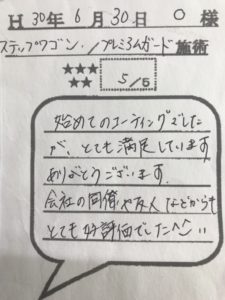 H 30年 6月 30日 O 様
ステップワゴン・/プレミアムガード 施術
★★★
★★
5/5
始めてのコーティングでした
が、とても満足しています
ありがとうございます
会社の同僚や友人などからも
とても好評価でした^^